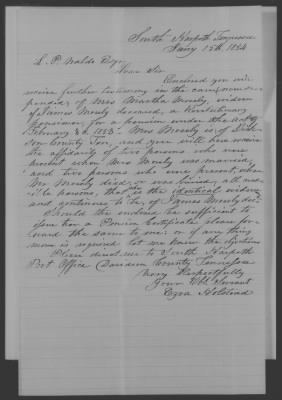 South Harpeth Tennessee
Jany 15th 1854
L. P. Waldo Esqr.
Dear Sir
Enclosed you will
receive further testimony in the case now sus-
pended, of Mrs Martha Mosely, widow
of James Mosely deceased, a Revolutionary
pensioner for a pension under the act of
February 3d, 1853. Mrs Mosely is of
County Ten. and you will here receive
the affidavits of two persons who were
present when Mrs Mosely was married
and two persons who were present when
Mr Mosely died, or was buried, all cred-
ible persons, that she is the identical widow
and continues to be, of James Mosely decd.
Should the enclosed be sufficient to
issue her a Pension Certificate please for-
ward the same to me; or if any thing
more is required let me know the
Please direct me to South Harpeth
Post Office Davidson County Tennessee
Very Respectfully
Your Obt. Servant
Ezra